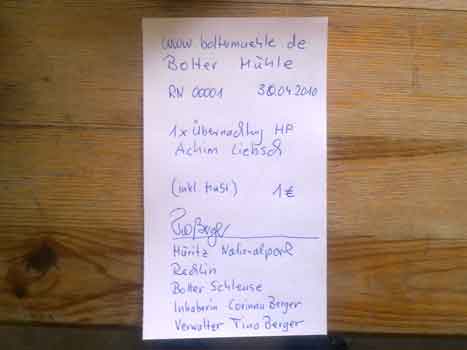 www.boltermuehle.de
Bolter Mühle
RN 00001 30.04.2010
1x Übernachtug HP
Achim Liebsch
(inkl. MwSt) 1 €
Müritz Nationalpark
Rechlin
Bolter Schleuse
Inhaberin Corinna Berger
Verwalter Tino Berger